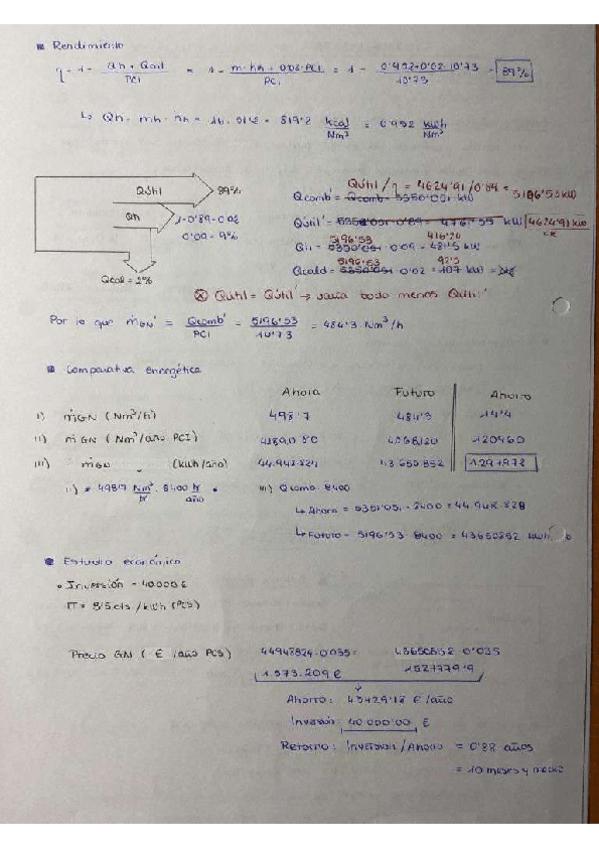 Rendimiento
η = 1 - (Qh + Qcal) / PCI = 1 - (m·hh + 0'02·PCI) / PCI = 1 - (0'952+0'02·10'73) / 10'73 = 89%
↳ Qh = mh · hh = 16 · = 819'2 kcal/Nm³ = 0'952 kwh/Nm³
Qútil 89%
Qh 1-0'89-0'02
0'09 = 9%
Qcal = 2%
Qútil/η = 4624'91/0'89 = 5196'53 kW
Qcomb' = Qcomb = 5350'051 kW
Qútil' = 5350'051·0'89 = 4761'55 kW 4624'91 kW
5196'53 416'20
Qh = 5350'051 · 0'09 = 481'5 kW
5196'53 92'9
Qcald = 5350'051 · 0'02 = 107 kW =
⊗ Qútil = Qútil' → varía todo menos Qútil'
Por lo que ṁGN' = Qcomb' / PCI = 5196'53 / 10'73 = 484'3 Nm³/h
Comparativa energética
Ahora Futuro Ahorro
I) ṁGN (Nm³/h) 498'7 484'3 14'4
II) ṁ GN (Nm³/año PCI) 4189080 4068120 120960
III) ṁGN (kWh/año) 44.948.824 43.650.852 1.297.972
II) * 498'7 Nm³/hr · 8400 hr/año
III) Qcomb · 8400
↳ Ahora = 5351'051 · 8400 = 44.948.828
↳ Futuro = 5196'53 · 8400 = 43650852 kwh
Estudio económico
• Inversión = 40.000 €
π = 3'5 cts /kWh (PCS)
Precio GN ( € /año PCS) 44948824·0'035= 43650852·0'035
1.573.209 € 1527779'9
Ahorro: 45429'18 €/año
Inversión: 40 000'00 €
Retorno: Inversión/Ahorro = 0'88 años
= 10 meses y medio